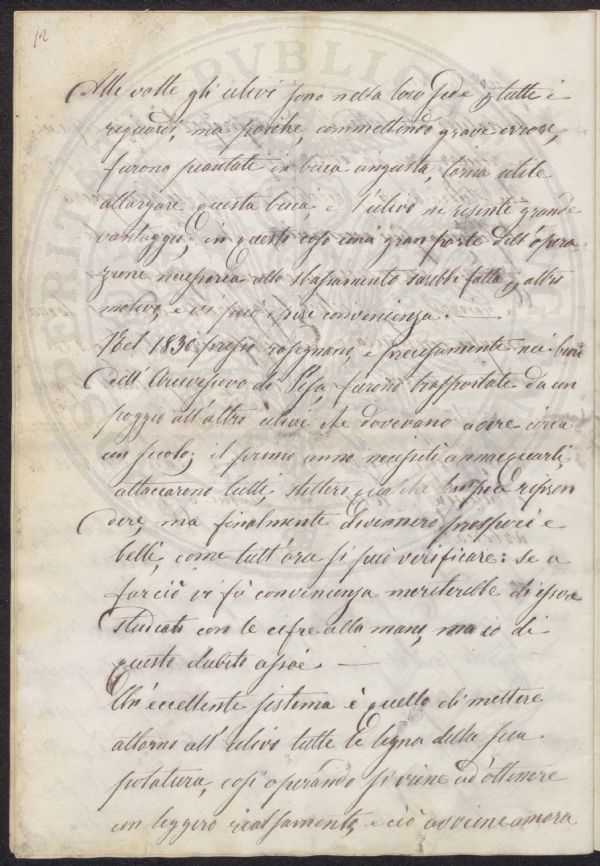 12
Alle volte gli ulivi sono nella loro sede p tutti i
riguardi, ma poiché, commettendo grave errore,
furono piantate in buca angusta, torna utile
allargare questa buca, e l'ulivo ne risente grande
vantaggio; in questo caso una gran parte dell'opera
zione necessaria allo sbassamento sarebbe fatta p altro
motivo, e vi può essere convenienza. —
Nel 1836 presso Rosignano, e precisamente nei beni
dell'Arcivescovo di Pisa, furono trasportate da un
poggio all'altro ulivi che dovevano avere circa
un secolo; il primo anno necessitò annaffiarli,
attaccarono tutti, stettero qualche tempo a ripren
dere, ma finalmente divennero prosperi e
belli, come tutt'ora si può verificare: se a
far ciò vi fù convenienza meriterebbe di essere
studiato con le cifre alla mano, ma io di
questo dubito assai. —
Un eccellente sistema è quello di mettere
attorno all'ulivo tutte le legna della sua
potatura, così operando si viene ad ottenere
un leggero rialzamento, e ciò avviene ancora